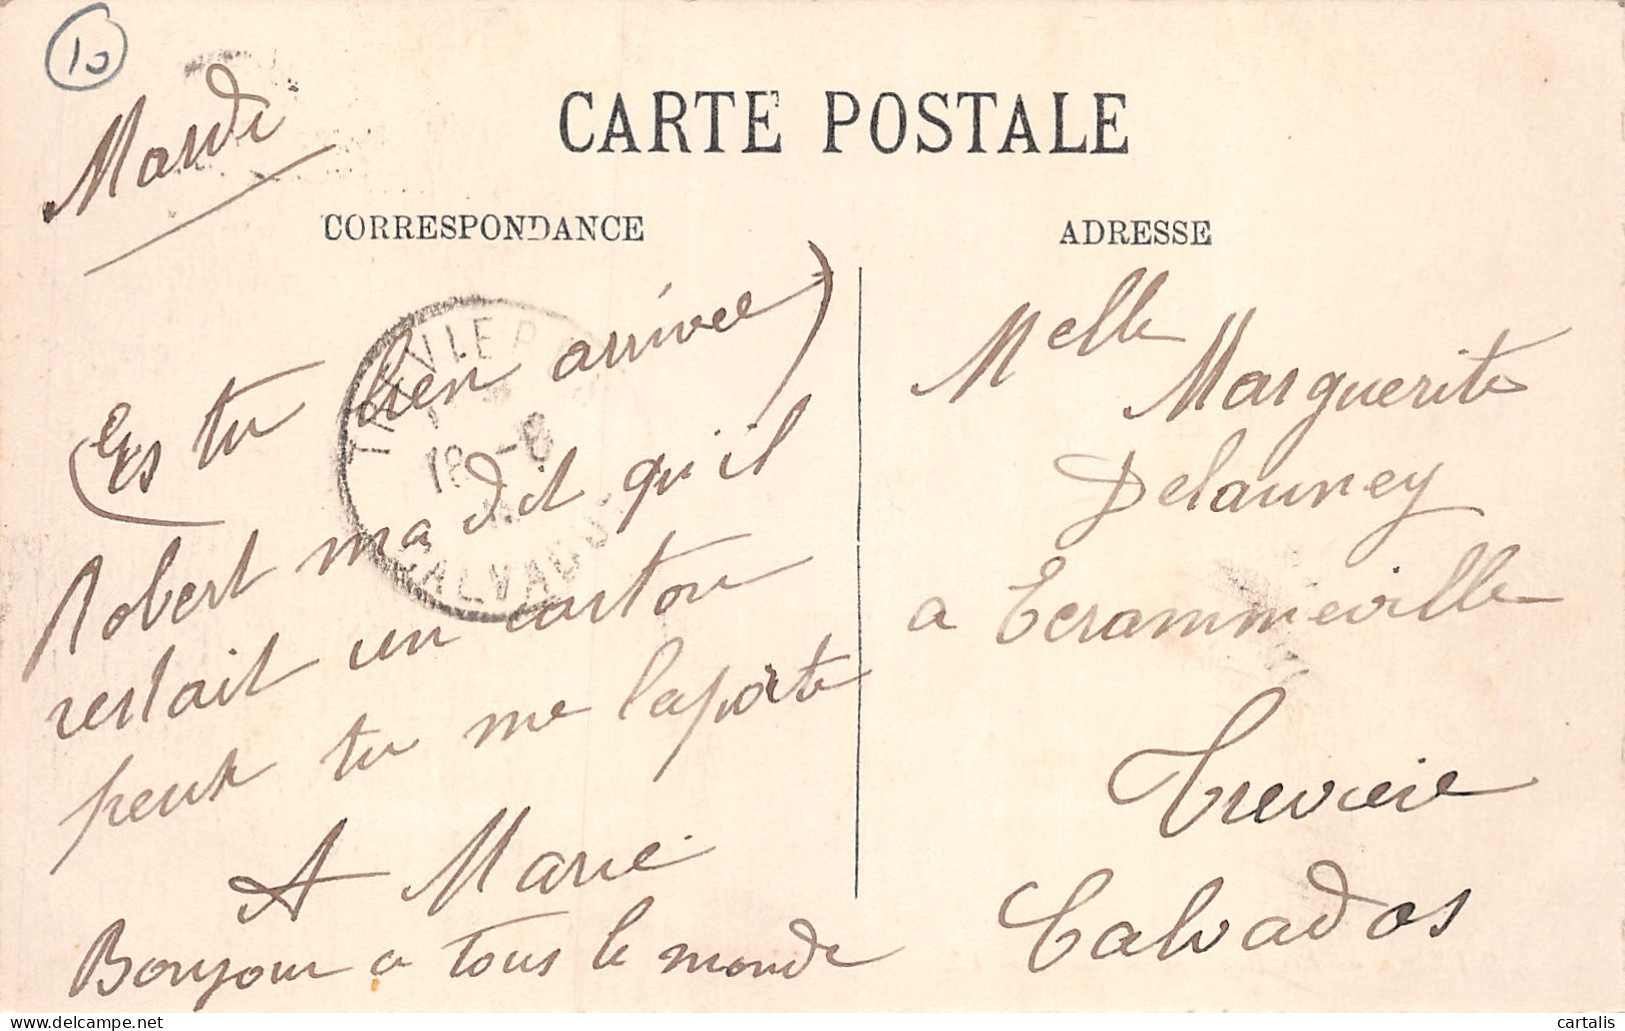 10
Mardi
CARTE POSTALE
CORRESPONDANCE
ADRESSE
Es tu bien arrivee
Robert ma dit qu'il
restait un carton
peux tu me l'aporte
A Marie
Bonjour a tous le monde
TREVIERES
18 -8
CALVADOS
Melle Marguerite
Delauney
a Ecrammeville
Treviere
Calvados
cartalis